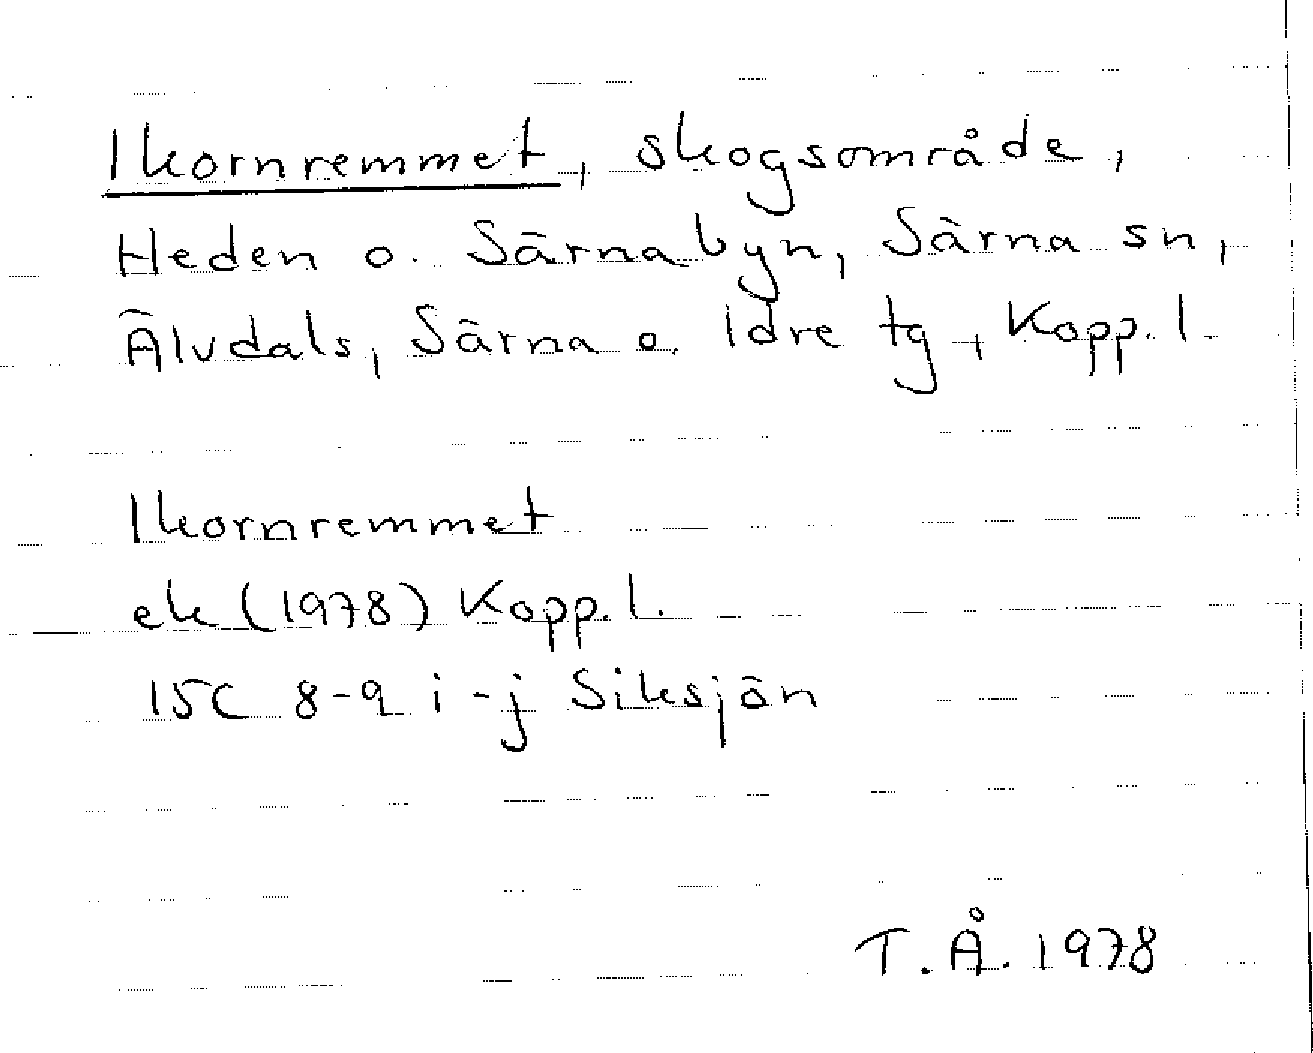 Ikornremmet, skogsområde,
Heden o. Särnabyn, Särna sn,
Älvdals, Särna o. Idre tg, Kopp.l.
Ikornremmet
ek (1978) Kopp.l.
15C 8-9 i-j Siksjön
T.Å. 1978